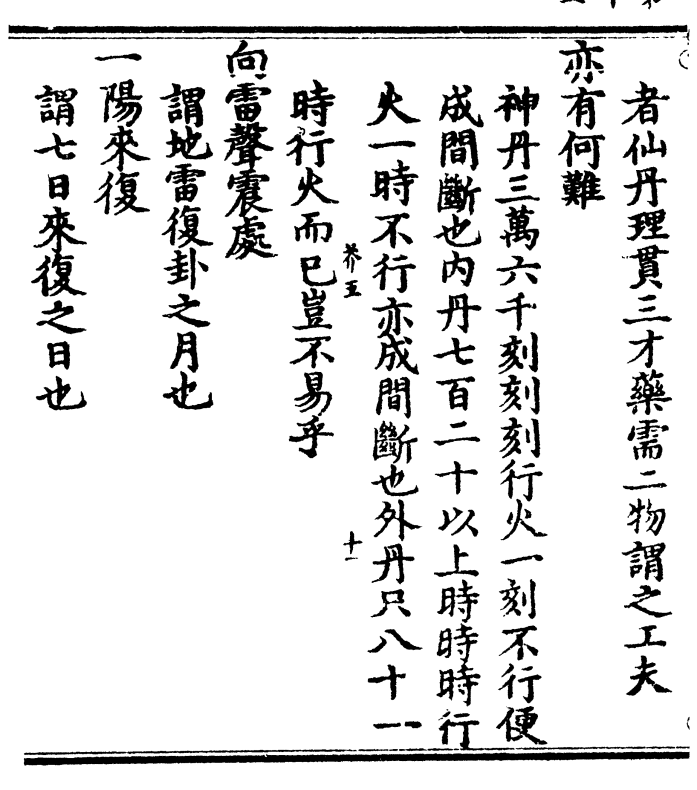 者仙丹理貫三才藥需二物謂之工夫
亦有何難
神丹三萬六千刻刻刻行火一刻不行便
成間斷也內丹七百二十以上時時時行
火一時不行亦成間斷也外丹只八十一
芥五
十一
時行火而巳豈不易乎
向雷聲震處
謂地雷復卦之月也
一陽來復
謂七日來復之日也